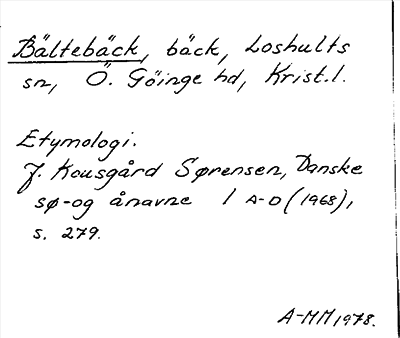 Bältebäck, bäck, Loshults
sn, Ö. Göinge hd, Krist.l.
Etymologi.
J. Kousgård Sørensen, Danske
sø-og ånavne I A-D (1968),
s. 279.
A-MM 1978.